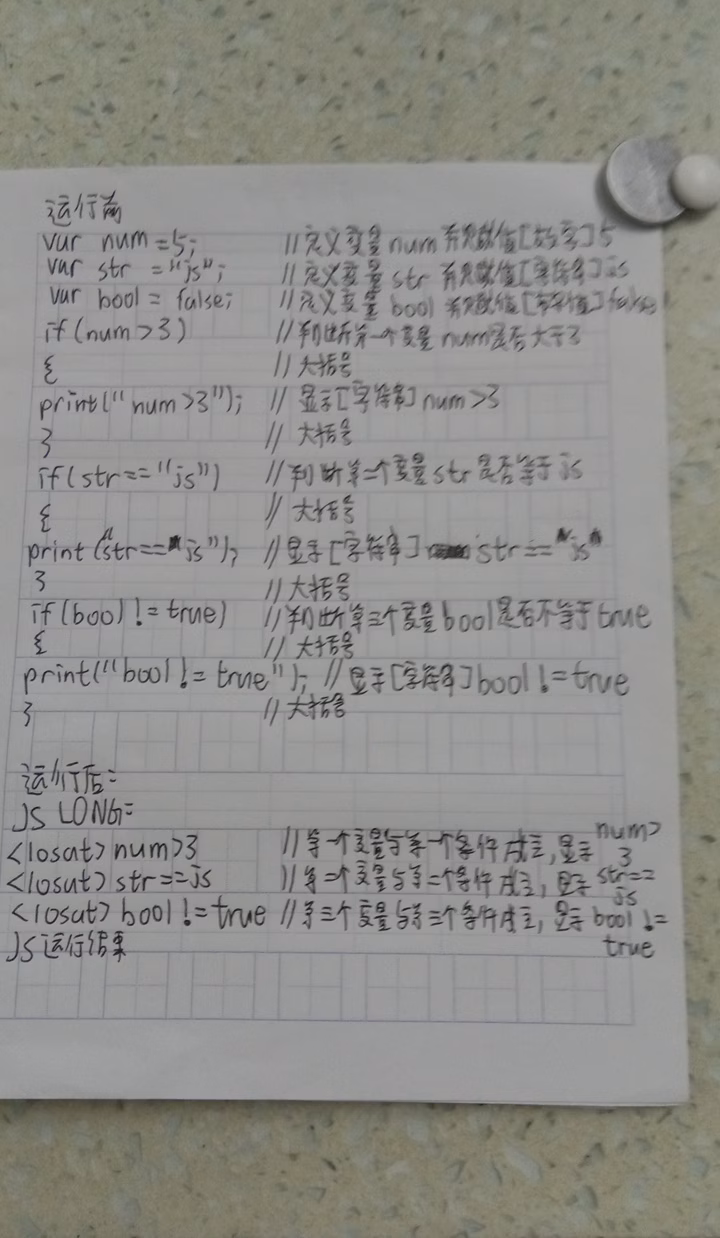 运行前
var num=5; //定义变量num 有效数值[数字]5
var str ="js"; //定义变量 str 有效数值[字符串]js
var bool = false; //定义变量 bool 有效数值[布尔值]false
if(num>3) //判断第一个变量 num是否大于3
{ //大括号
print("num>3"); //显示[字符串]num>3
} //大括号
if(str=="js") //判断第二个变量str是否等于js
{ //大括号
print("str=="js"); //显示[字符串] str=="js"
} //大括号
if(bool!=true) //判断第三个变量bool是否不等于true
{ //大括号
print("bool!=true"); //显示[字符串]bool!=true
} //大括号
运行后:
JS LONG:
<losat>num>3 //第一个变量与第一个条件成立,显示 num>3
<losat>str==js //第二个变量与第二个条件成立,显示 str==js
<losat>bool!=true //第三个变量与第三个条件成立,显示 bool!=true
JS运行结果